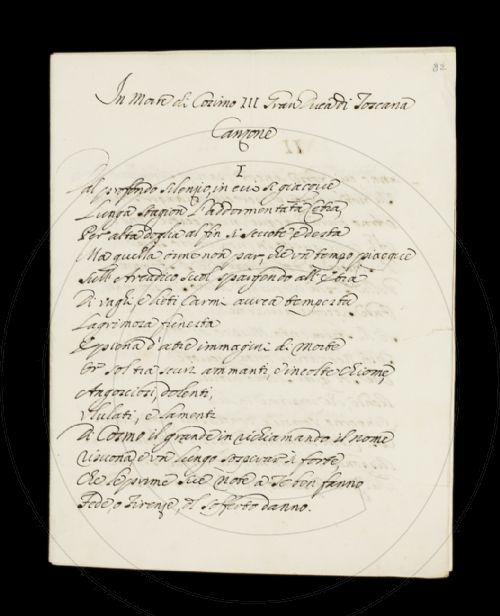 82
In Morte di Cosimo III Gran Duca di Toscana
Canzone
I
Dal profondo silenzio, in cui si giacque
Lunga stagion l'addormentata Cetra,
Per alta doglia al fin si scuote, e desta
Ma quella ormai non par, che un tempo piacque
Sull' Arcadico suol spargendo all' Etra
Di vaghi, e lieti Carmi aurea tempesta
Lagrimosa funesta
E piena d'atre immagini di Morte
Or sol tra scuri ammanti, e incolte chiome,
Angosciosi, dolenti,
Ululati, e lamenti
Di Cosmo il grande in vi chiamando il nome
Risuona e un lungo sospirar sì forte,
Che le prime sue note a Te ben fanno
Fede, o Firenze, del sofferto danno.